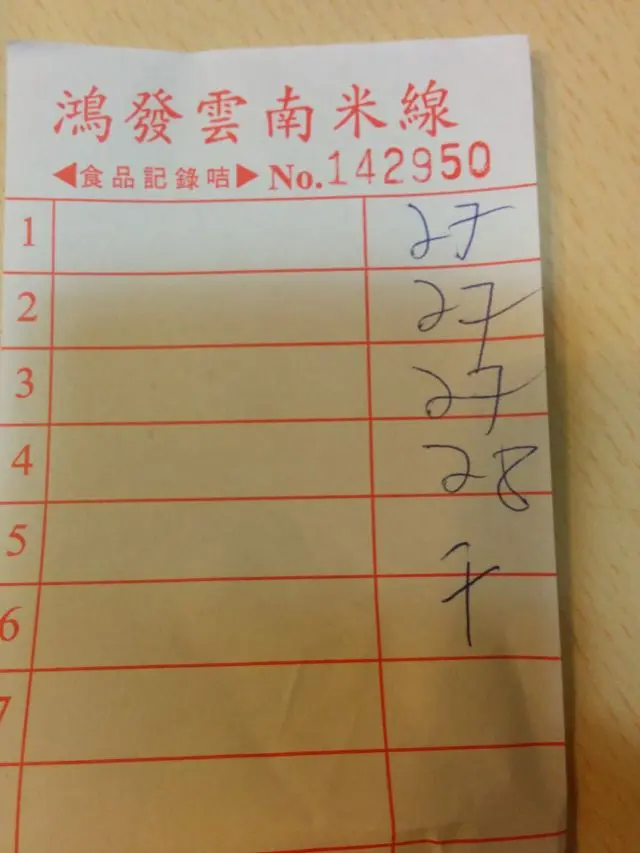 鴻發雲南米線
◀食品記錄咭▶ No.142950
1 27
2 27
3 27
4 28
5
6
7